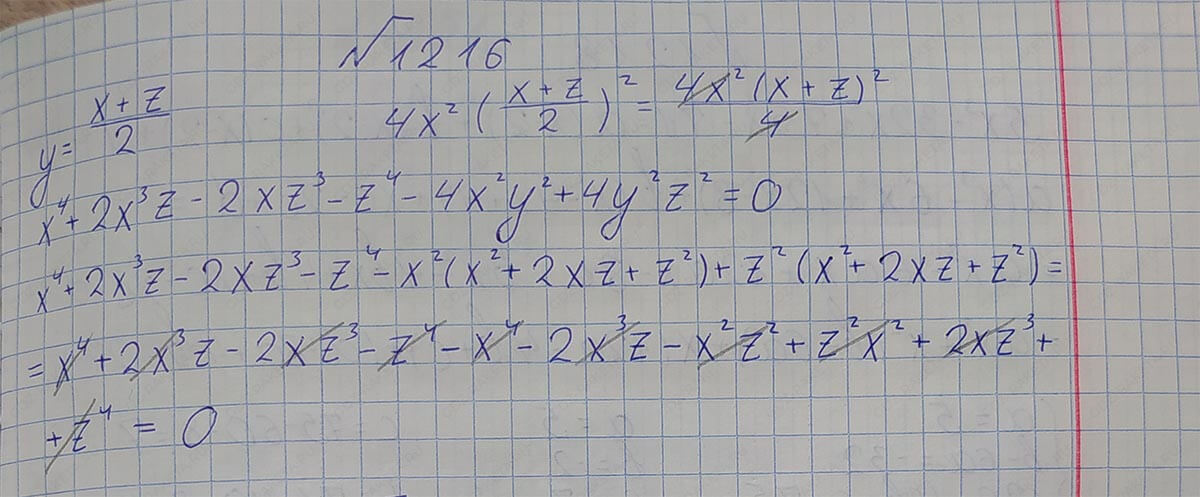 √1216
y = (x + z)/2
4x² ((x + z)/2)² = 4x² (x + z)²/4
x⁴ + 2x³z - 2xz³ - z⁴ - 4x²y² + 4y²z² = 0
x⁴ + 2x³z - 2xz³ - z⁴ - x²(x² + 2xz + z²) + z²(x² + 2xz + z²) =
= x⁴ + 2x³z - 2xz³ - z⁴ - x⁴ - 2x³z - x²z² + z²x² + 2xz³ +
+ z⁴ = 0